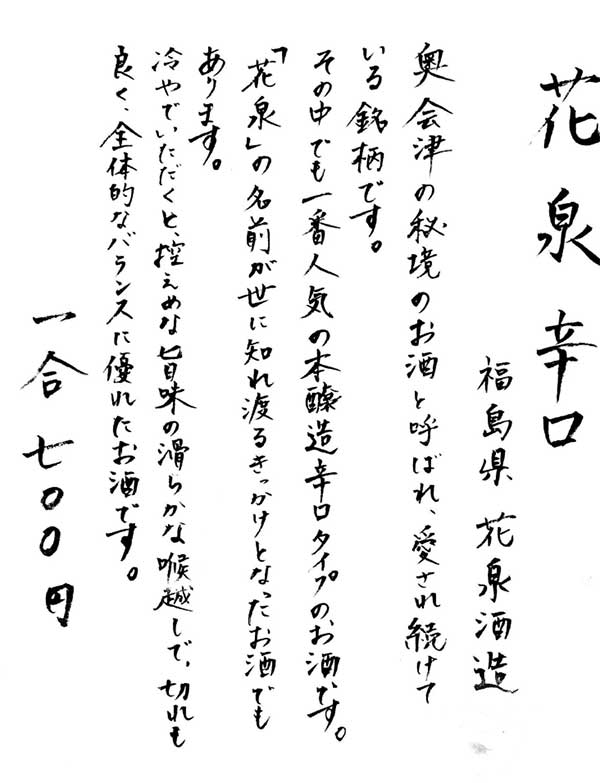 花泉 辛口
福島県 花泉酒造
奥会津の秘境のお酒と呼ばれ、愛され続けて
いる銘柄です。
その中でも一番人気の本醸造辛口タイプのお酒です。
「花泉」の名前が世に知れ渡るきっかけとなったお酒でも
あります。
冷やでいただくと、控えめな旨味の滑らかな喉越しで、切れも
良く、全体的なバランスに優れたお酒です。
一合 七〇〇円